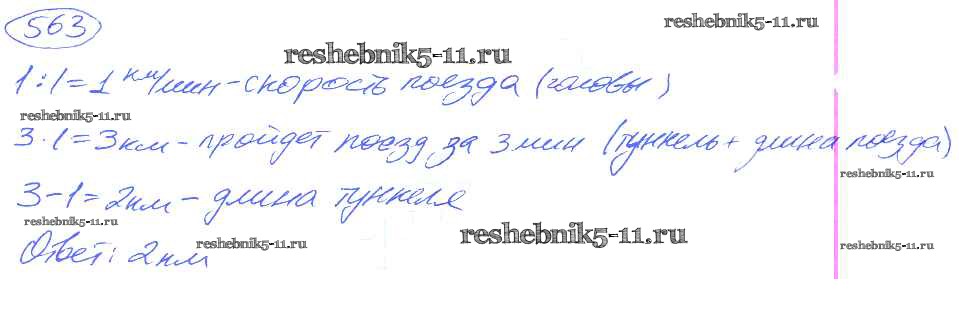 563
reshebnik5-11.ru
reshebnik5-11.ru
1:1=1 км/мин - скорость поезда (головы)
reshebnik5-11.ru
3·1=3км - пройдет поезд за 3 мин (туннель + длина поезда)
reshebnik5-11.ru
3-1=2км - длина туннеля
reshebnik5-11.ru
reshebnik5-11.ru
reshebnik5-11.ru
reshebnik5-11.ru
Ответ: 2км